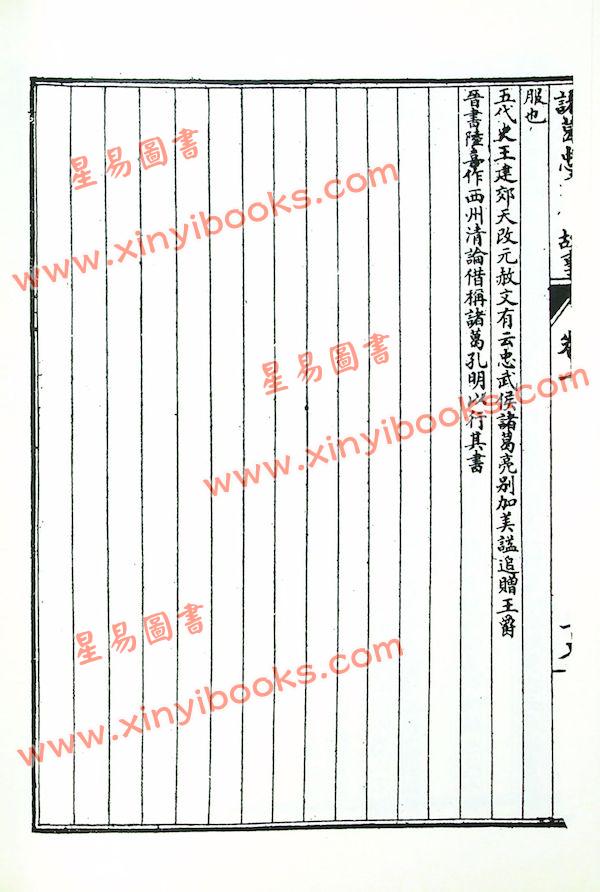 服也
五代史王建郊天改元赦文有云忠武侯諸葛亮別加美諡追贈王爵
晉書陸喜作西州清論借稱諸葛孔明以行其書
故事
卷一
星易圖書
www.xinyibooks.com
星易圖書
www.xinyibooks.com
星易圖書
www.xinyibooks.com